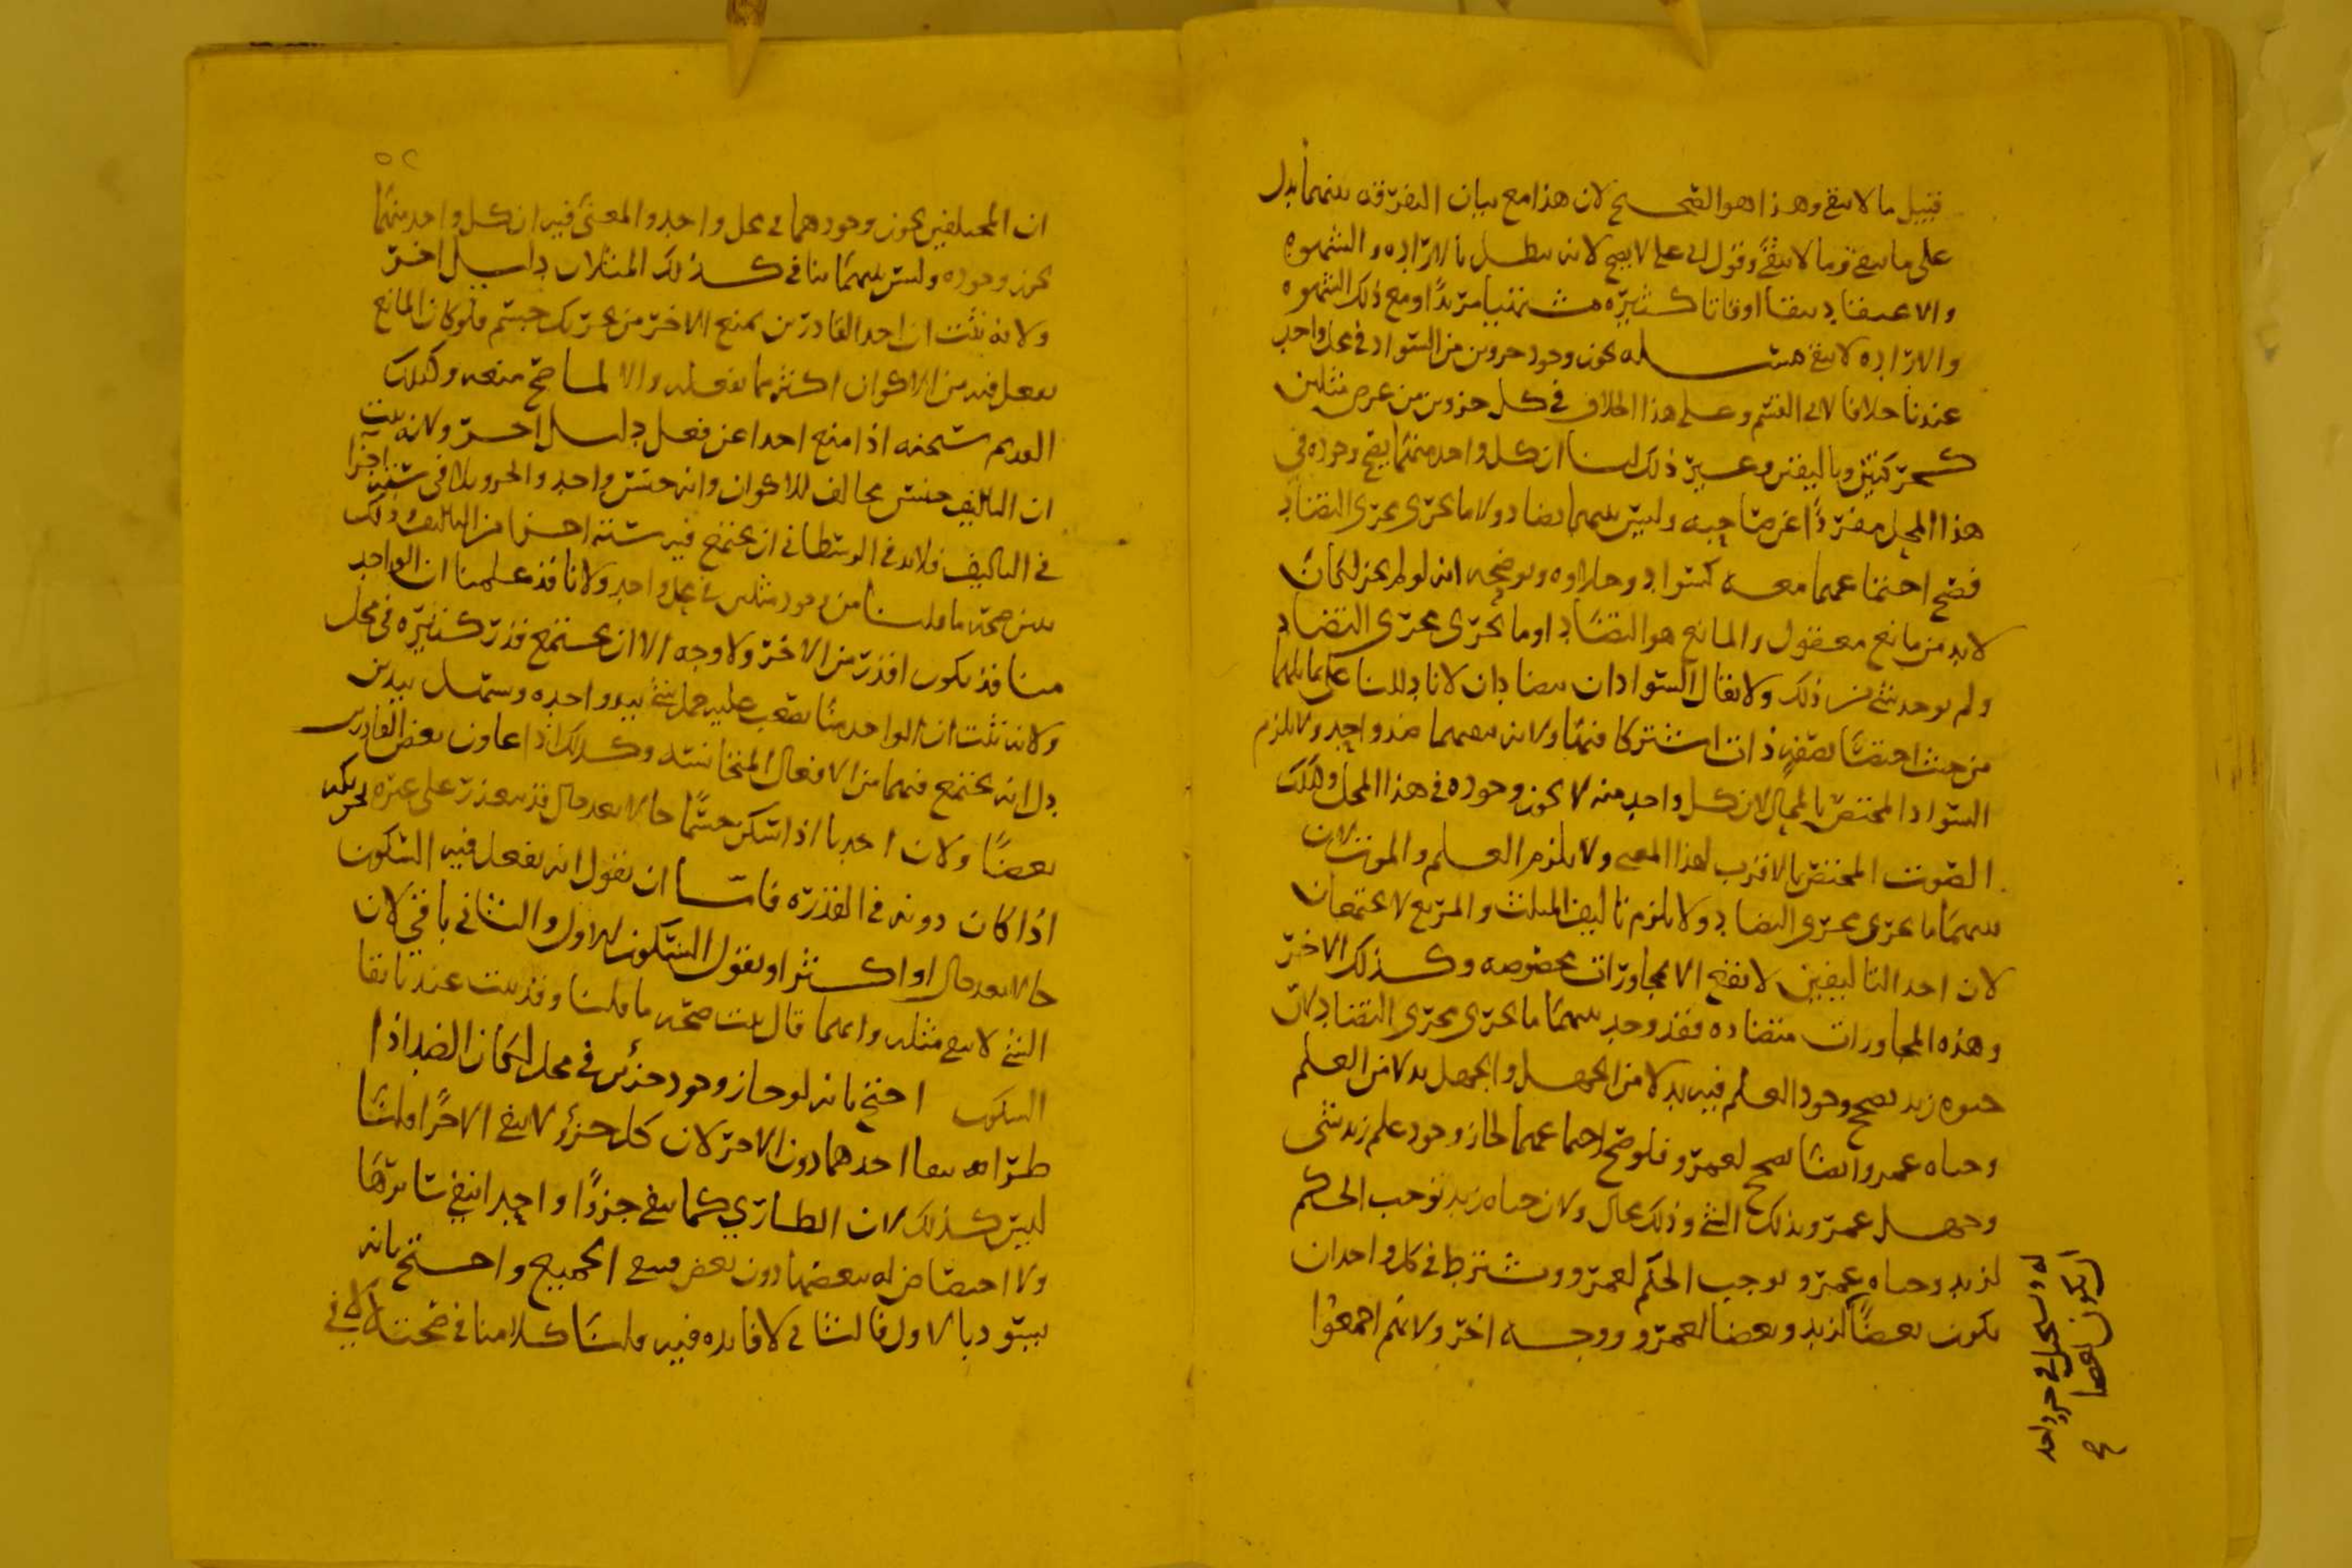 قبيل ما لا يبقى وهذا هو الصحيح لان هذا مع بيان التفرقة بينهما يدل
على ما يبقى وما لا يبقى وقول ابي علي لا يصح لانه يبطل بالارادة والشهوة
والاعتقاد يبقا اوقاتا كثيرة مشتهيا مريدا ومع ذلك الشهوة
والارادة لا يبقى مسئلة يجوز وجود جزوين من السواد في محل واحد
عندنا خلافا لابي القسم وعلى هذا الخلاف في كل جزوين من عرض مثلين
كحركتين وتاليفين وغير ذلك لنا ان كل واحد منهما يصح وجوده في
هذا المحل مفردا عن صاحبه وليس بينهما تضاد ولا ما يجرى مجرى التضاد
فصح اجتماعهما معه كسواد وحلاوه ويوضحه انه لو لم يجز لكان
لابد من مانع معقول والمانع هو التضاد او ما يجرى مجرى التضاد
ولم يوجد شئ من ذلك ولا يقال السوادان يتضادان لانا دللنا على تماثلهما
من حيث اختصا بصفة ذات اشتركا فيها ولانه ينفيهما ضد واحد ولا يلزم
السواد المختص بالمحال لان كل واحد منه لا يجوز وجوده في هذا المحل وكذلك
الصوت المختص بالاقرب لهذا المعنى ولا يلزم العلم والموت لان
بينهما ما يجرى مجرى التضاد ولا يلزم تاليف المثلث والمربع لا يجتمعان
لان احد التاليفين لا يقع الا بمجاورات مخصوصه وكذلك الاخر
وهذه المجاورات متضاده فقد وجد بينهما ما يجرى مجرى التضاد لان
حيوه زيد يصح وجود العلم فيه بدلا من الجهل والجهل بدلا من العلم
وحياه عمرو ايضا يصح لعمرو فلو صح اجتماعهما لجاز وجود علم زيد بشى
وجهل عمرو بذلك الشئ وذلك محال ولان حياه زيد توجب الحكم
لزيد وحياه عمرو يوجب الحكم لعمرو ويشترط في كل واحد ان
يكون بعضا لزيد وبعضا لعمرو ووجه اخر ولانهم اجمعوا
له ويستحيل في جزو واحد
ان يكون بعضا
ان المختلفين يجوز وجودهما في محل واحد والمعنى فيه ان كل واحد منهما
يجوز وجوده وليس بينهما تنافى كذلك المثلان دليل اخر
ولانه يثبت ان احد القادرين يمنع الاخر من تحريك جسم فلو كان المانع
يفعل فيه من الاكوان اكثر مما يفعله والا لما صح منعه وكذلك
القديم سبحانه اذا منع احدا عن فعل دليل اخر ولانه يثبت
ان التاليف جنس مخالف للاكوان وانه جنس واحد والجزو يلاقى ستة اجزا
في التاليف فلابد في الوسطاني ان يجتمع فيه ستة اجزا من التاليف وذلك
يبين صحه ما قلنا من وجود مثلين في محل واحد ولانا قد علمنا ان الواحد
منا قد يكون اقدر من الاخر ولا وجه الا ان يجتمع قدر كثيره في محل
ولانه يثبت ان الواحد منا يصعب عليه حمل شئ بيد واحده وسهل بيدين
دل انه يجتمع فيهما من الافعال المتجانسه وكذلك اذا عاون بعض القادرين
بعضا ولان احدنا اذا سكن جسما حالا بعد حال قد يتعذر على غيره تحريكه
اذا كان دونه في القدره فاما ان نقول انه يفعل فيه السكون
حالا بعد حال او اكثر او نقول السكون الاول والثاني باقي لان
الشئ لا ينفى مثله وايهما قال يثبت صحه ما قلنا وقد يثبت عندنا بقا
السكون احتج بانه لو جاز وجود جزئين في محل لكان الضد اذا
طرا بنفا احدهما دون الاخر لان كل جزؤ لا ينفى الا جزا قلنا
ليس كذلك لان الطاري كما ينفى جزوا واحدا ينفى سايرها
ولا اختصاص له ببعضها دون بعض فينفى الجميع واحتج بانه
يسود بالاول فالثاني لا فائده فيه قلنا كلامنا في صحته لا في